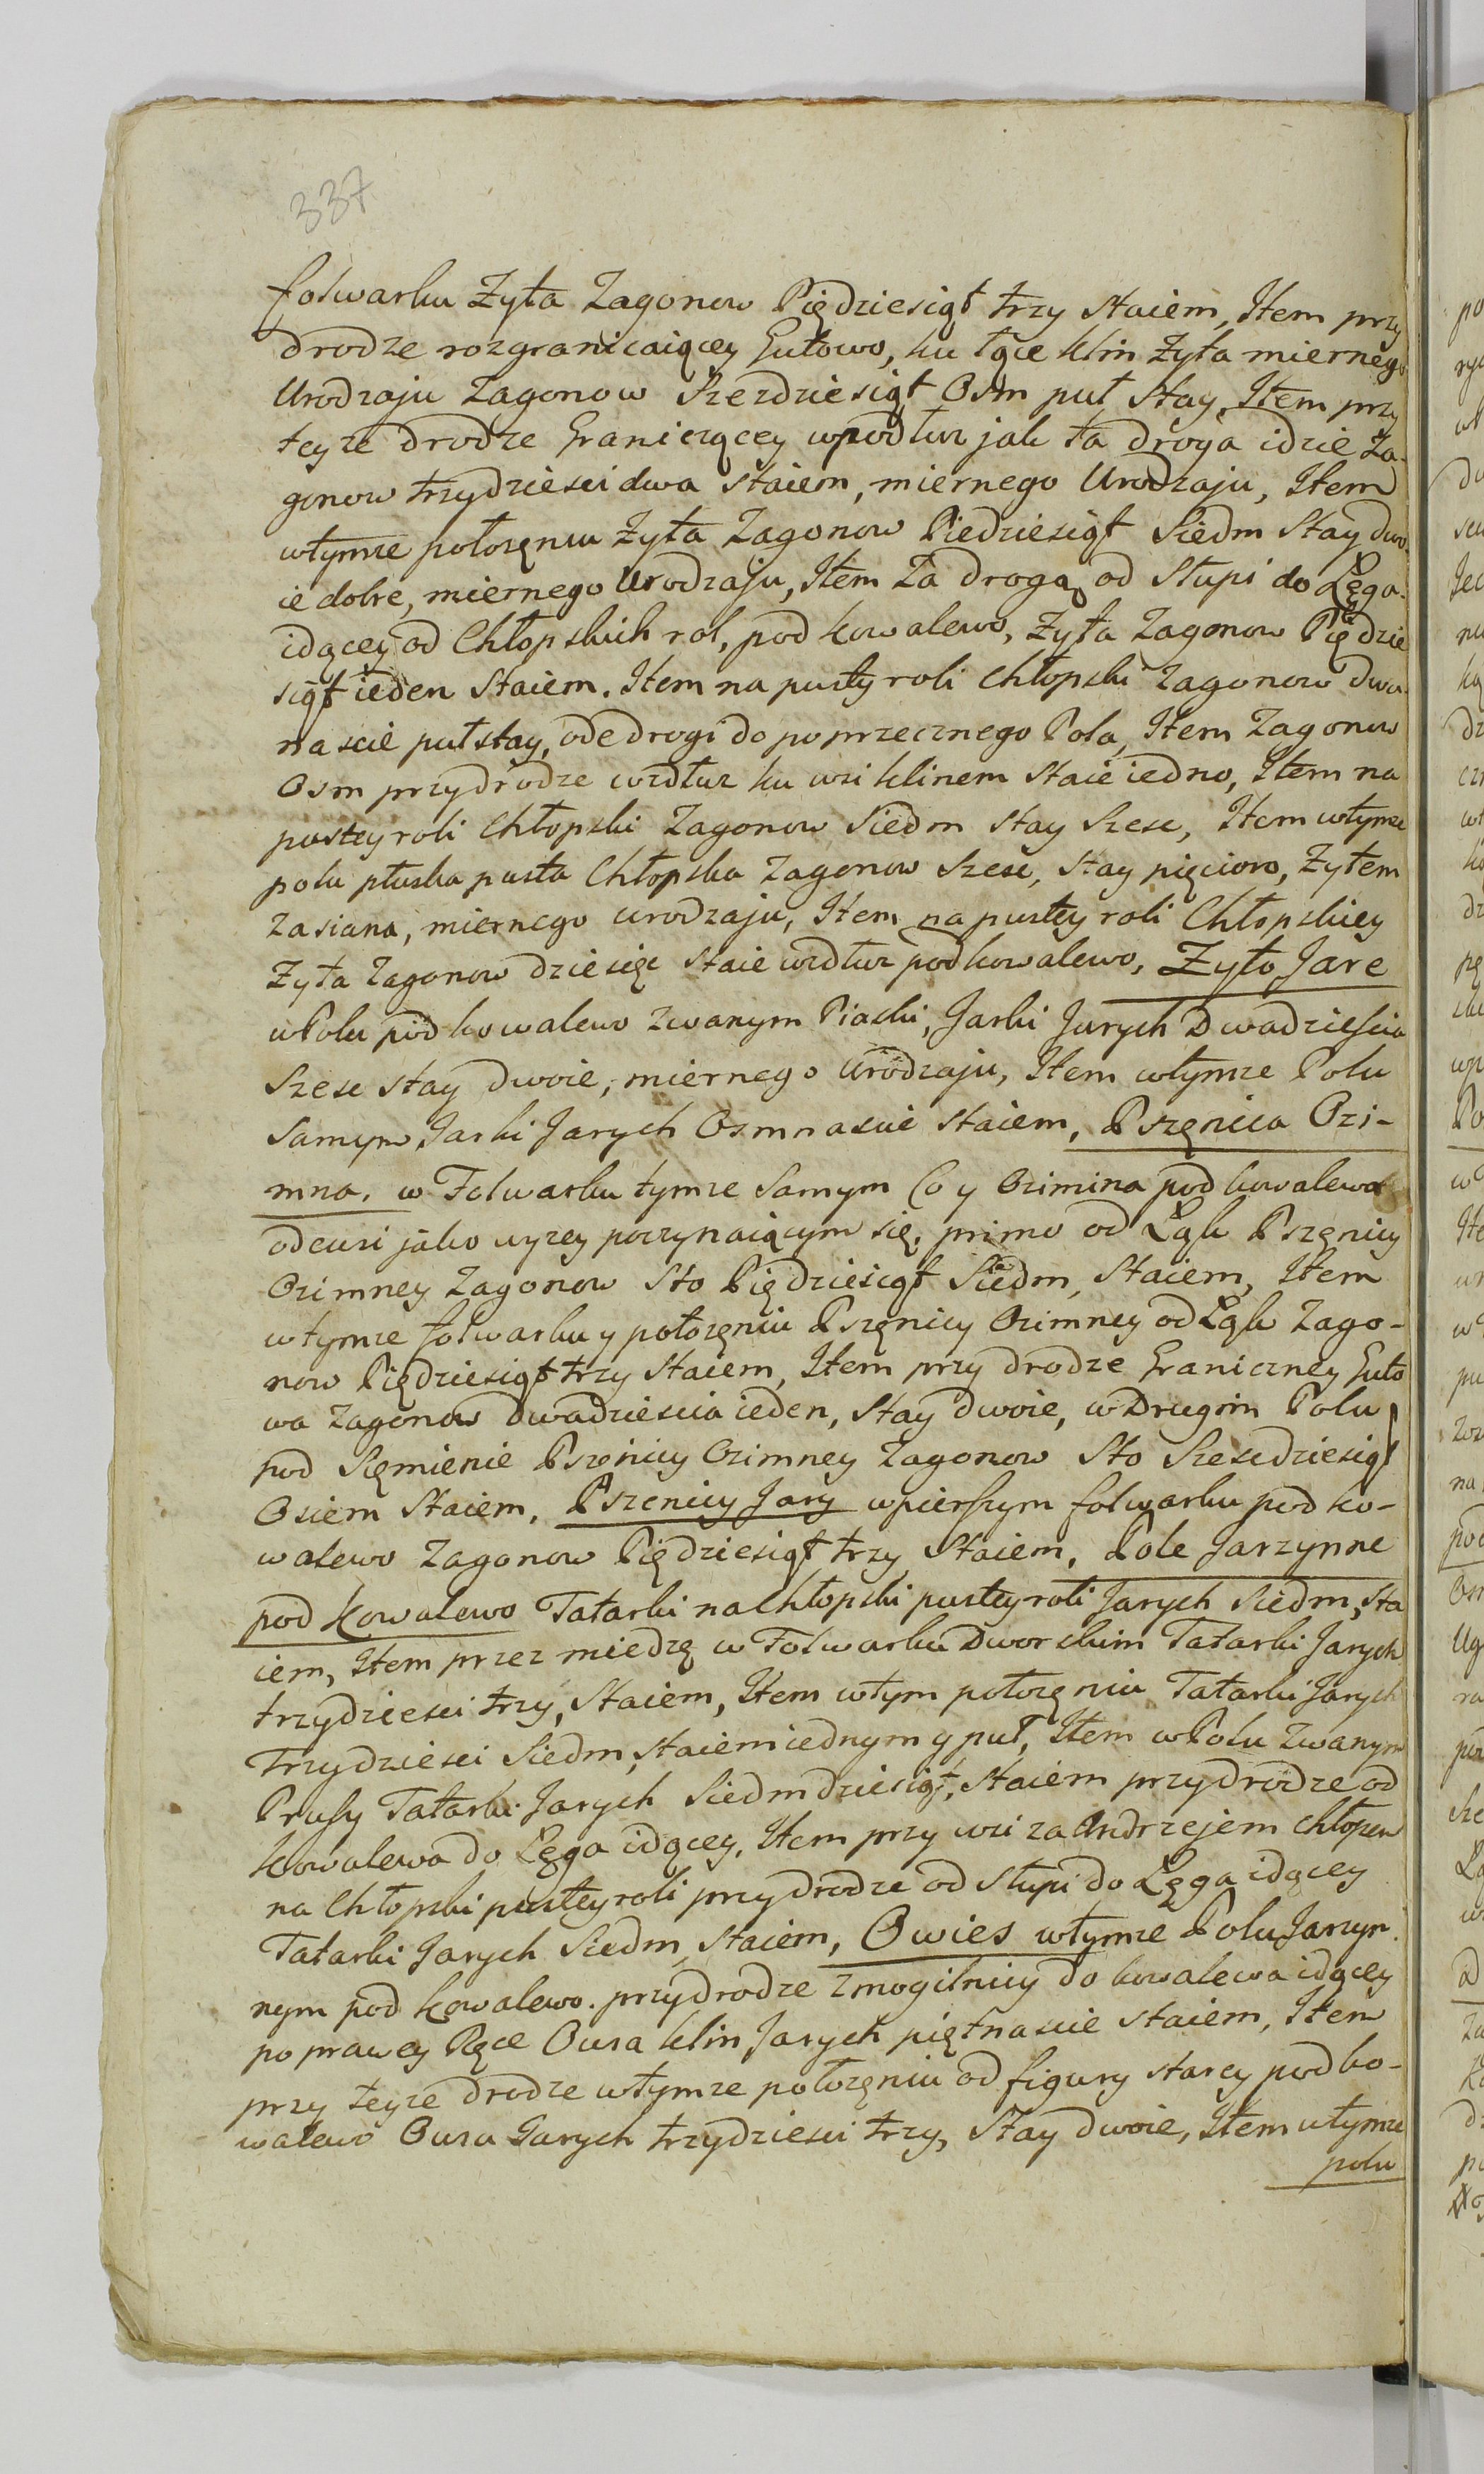 337
folwarku Zyta Zagonow Piędziesiąt trzy staiem, Item przy
drodze rozgranicaiącey Gutowo, ku łące klin Zyta miernego
Urodzaju Zagonow Szezdziesiąt Osm puł stay, Item przy
teyze drodze Graniczącey wpodłuz jak ta droga idzie Za-
gonow trzydziesci dwa staiem, miernego Urodzaju, Item
wtymze połozęniu Zyta Zagonow Piedziesiąt Siedm Stay dwo-
ie dobre, miernego Urodzaju, Item Za drogą od Słupi do Łęga
idącey od Chłopskich rol, pod Kowalewo, Zyta Zagonow Pię dzie
siąt ieden Staiem. Item na pusty roli Chłopski Zagonow dwa-
nascie puł stay, ode drogi do poprzecznego Pola, Item Zagonow
Osm przy drodze wzdłuz ku wsi klinem staie iedno, Item na
pustey roli Chłopski Zagonow Siedm stay Szesc, Item wtymze
polu płuska pusta Chłopska Zagonow Szesc, stay pięcioro, Zytem
Zasiana, miernego urodzaju, Item na pustey roli Chłopskiey
Zyta Zagonow dziesięc staie wzdłuz pod kowalewo, Zyto Jare
w Polu pod kowalewo zwanym Piaski, Jarki Jarych Dwadziescia
Szesc stay dwoie, miernego urodzaju, Item wtymze Polu
Samym Jarki Jarych Osmnascie staiem, Pszęnica Ozi-
mna. w Folwarku tymze Samym Co y Ozimina pod kowalewo
odewsi jako wyzey poczynaiącym się, primo od Łąk Pszęnicy
Ozimney Zagonow Sto Piędziesiąt Siedm, Staiem, Item
wtymze folwarku y połozęniu Pszęnicy Ozimney od Łąk Zago-
now Piędziesiąt trzy Staiem, Item przy drodze Graniczney Guto
wa Zagonow Dwadziescia ieden, Stay dwoie, w Drugim Polu
pod Sięmienie Pszenicy Ozimney Zagonow Sto Szescdziesiąt
Osiem Staiem, Pszenicy Jary wpierszym folwarku pod ko-
walewo Zagonow Piędziesiąt trzy Staiem, Pole Jarzynne
pod Kowalewo Tatarki na Chłopski pustey roli Jarych Siedm, Sta
iem, Item przez miedzę w Folwarku Dworskim Tatarki Jarych
trzydziesci trzy, Staiem, Item wtym połozęniu Tatarki Jarych
Trzydziesci Siedm, staiem iednym y puł, Item w Polu Zwanym
Prusy Tatarki Jarych Siedmdziesiąt, Staiem przy drodze od
Kowalewa do Łęga idącey, Item przy wsi za Andrzejem Chłopem
na Chłopski pustey roli przy drodze od Słupi do Łęga idącey
Tatarki Jarych Siedm, Staiem, Owies wtymze Polu Jarzyn-
nym pod Kowalewo. przy drodze z mogilnicy do kowalewa idącey
po prawey Ręce Owsa klin Jarych piętnascie staiem, Item
przy teyze drodze wtymze połozęniu od figury starey pod ko-
walewo Owsa Jarych trzydziesci trzy, Stay dwoie, Item wtymze
polu